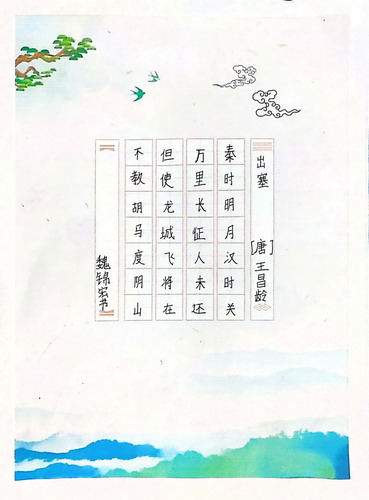 出塞 [唐]王昌龄
秦时明月汉时关
万里长征人未还
但使龙城飞将在
不教胡马度阴山
魏锦宏书